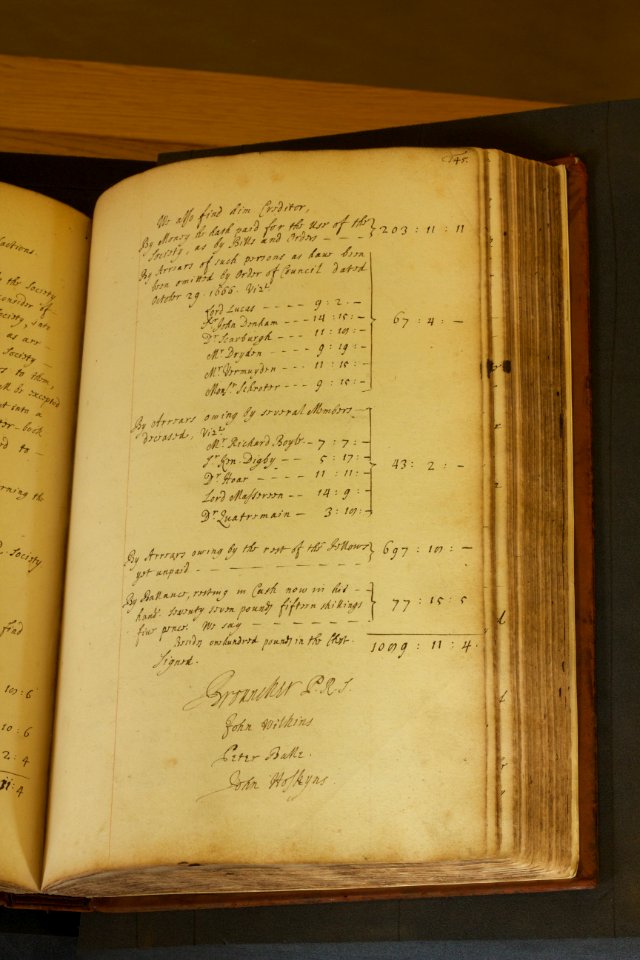 factions.
the Society
consider of
Society, into
as are
Society
to them,
be excepted
put into a
ter-book
ed to -
erning the
d. Society
find
10 : 6
10 : 6
2 : 4
11 : 4
145.
We also find him Creditor,
By Money he hath paid for the use of the
Society, as by Bills and Orders - - - } 203 : 11 : 11
By Arrears of such persons as have been
been omitted by Order of Council dated
October 29. 1666. Vizt
Lord Lucas - - - - 9 : 2 : -
Sr John Denham - - - 14 : 15 : -
Dr Scarburgh - - - 11 : 10 : -
Mr Dryden - - - - 9 : 19 : - } 67 : 4 : -
Mr Vermuyden - - - 11 : 15 : -
Monsr Schroter - - - 9 : 15 : -
By Arrears owing by severall Members
deceased, Vizt
Mr Richard Boyle - 7 : 7 : -
Sr Ken. Digby - - - 5 : 17 : -
Dr Hoar - - - - 11 : 11 : - } 43 : 2 : -
Lord Massereen - - 14 : 9 : -
Dr Quatremain - 3 : 10 : -
By Arrears owing by the rest of the Fellows
yet unpaid - - - - - } 697 : 10 : -
By Ballance, resting in Cash now in his
hand seventy seven pounds fifteen shillings
five pence. We say - - - - - } 77 : 15 : 5
Besides one hundred pounds in the Chest. 1089 : 11 : 4.
Signed.
Brouncker P.R.S.
John Wilkins
Peter Balle.
John Hoskyns.